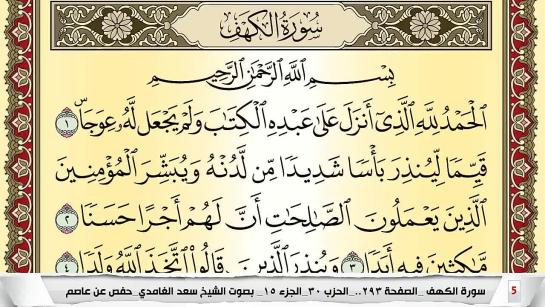 سُورَةُ الْكَهْفِ
بِسْمِ اللَّهِ الرَّحْمَٰنِ الرَّحِيمِ
الْحَمْدُ لِلَّهِ الَّذِي أَنزَلَ عَلَىٰ عَبْدِهِ الْكِتَابَ وَلَمْ يَجْعَل لَّهُ عِوَجًا ۜ ١
قَيِّمًا لِّيُنذِرَ بَأْسًا شَدِيدًا مِّن لَّدُنْهُ وَيُبَشِّرَ الْمُؤْمِنِينَ
الَّذِينَ يَعْمَلُونَ الصَّالِحَاتِ أَنَّ لَهُمْ أَجْرًا حَسَنًا ٢
مَّاكِثِينَ فِيهِ أَبَدًا ٣ وَيُنذِرَ الَّذِينَ قَالُوا اتَّخَذَ اللَّهُ وَلَدًا ٤
5 سورة الكهف _الصفحة ٢٩٣.._ الحزب ٣٠_ الجزء ١٥_ بصوت الشيخ سعد الغامدي_ حفص عن عاصم